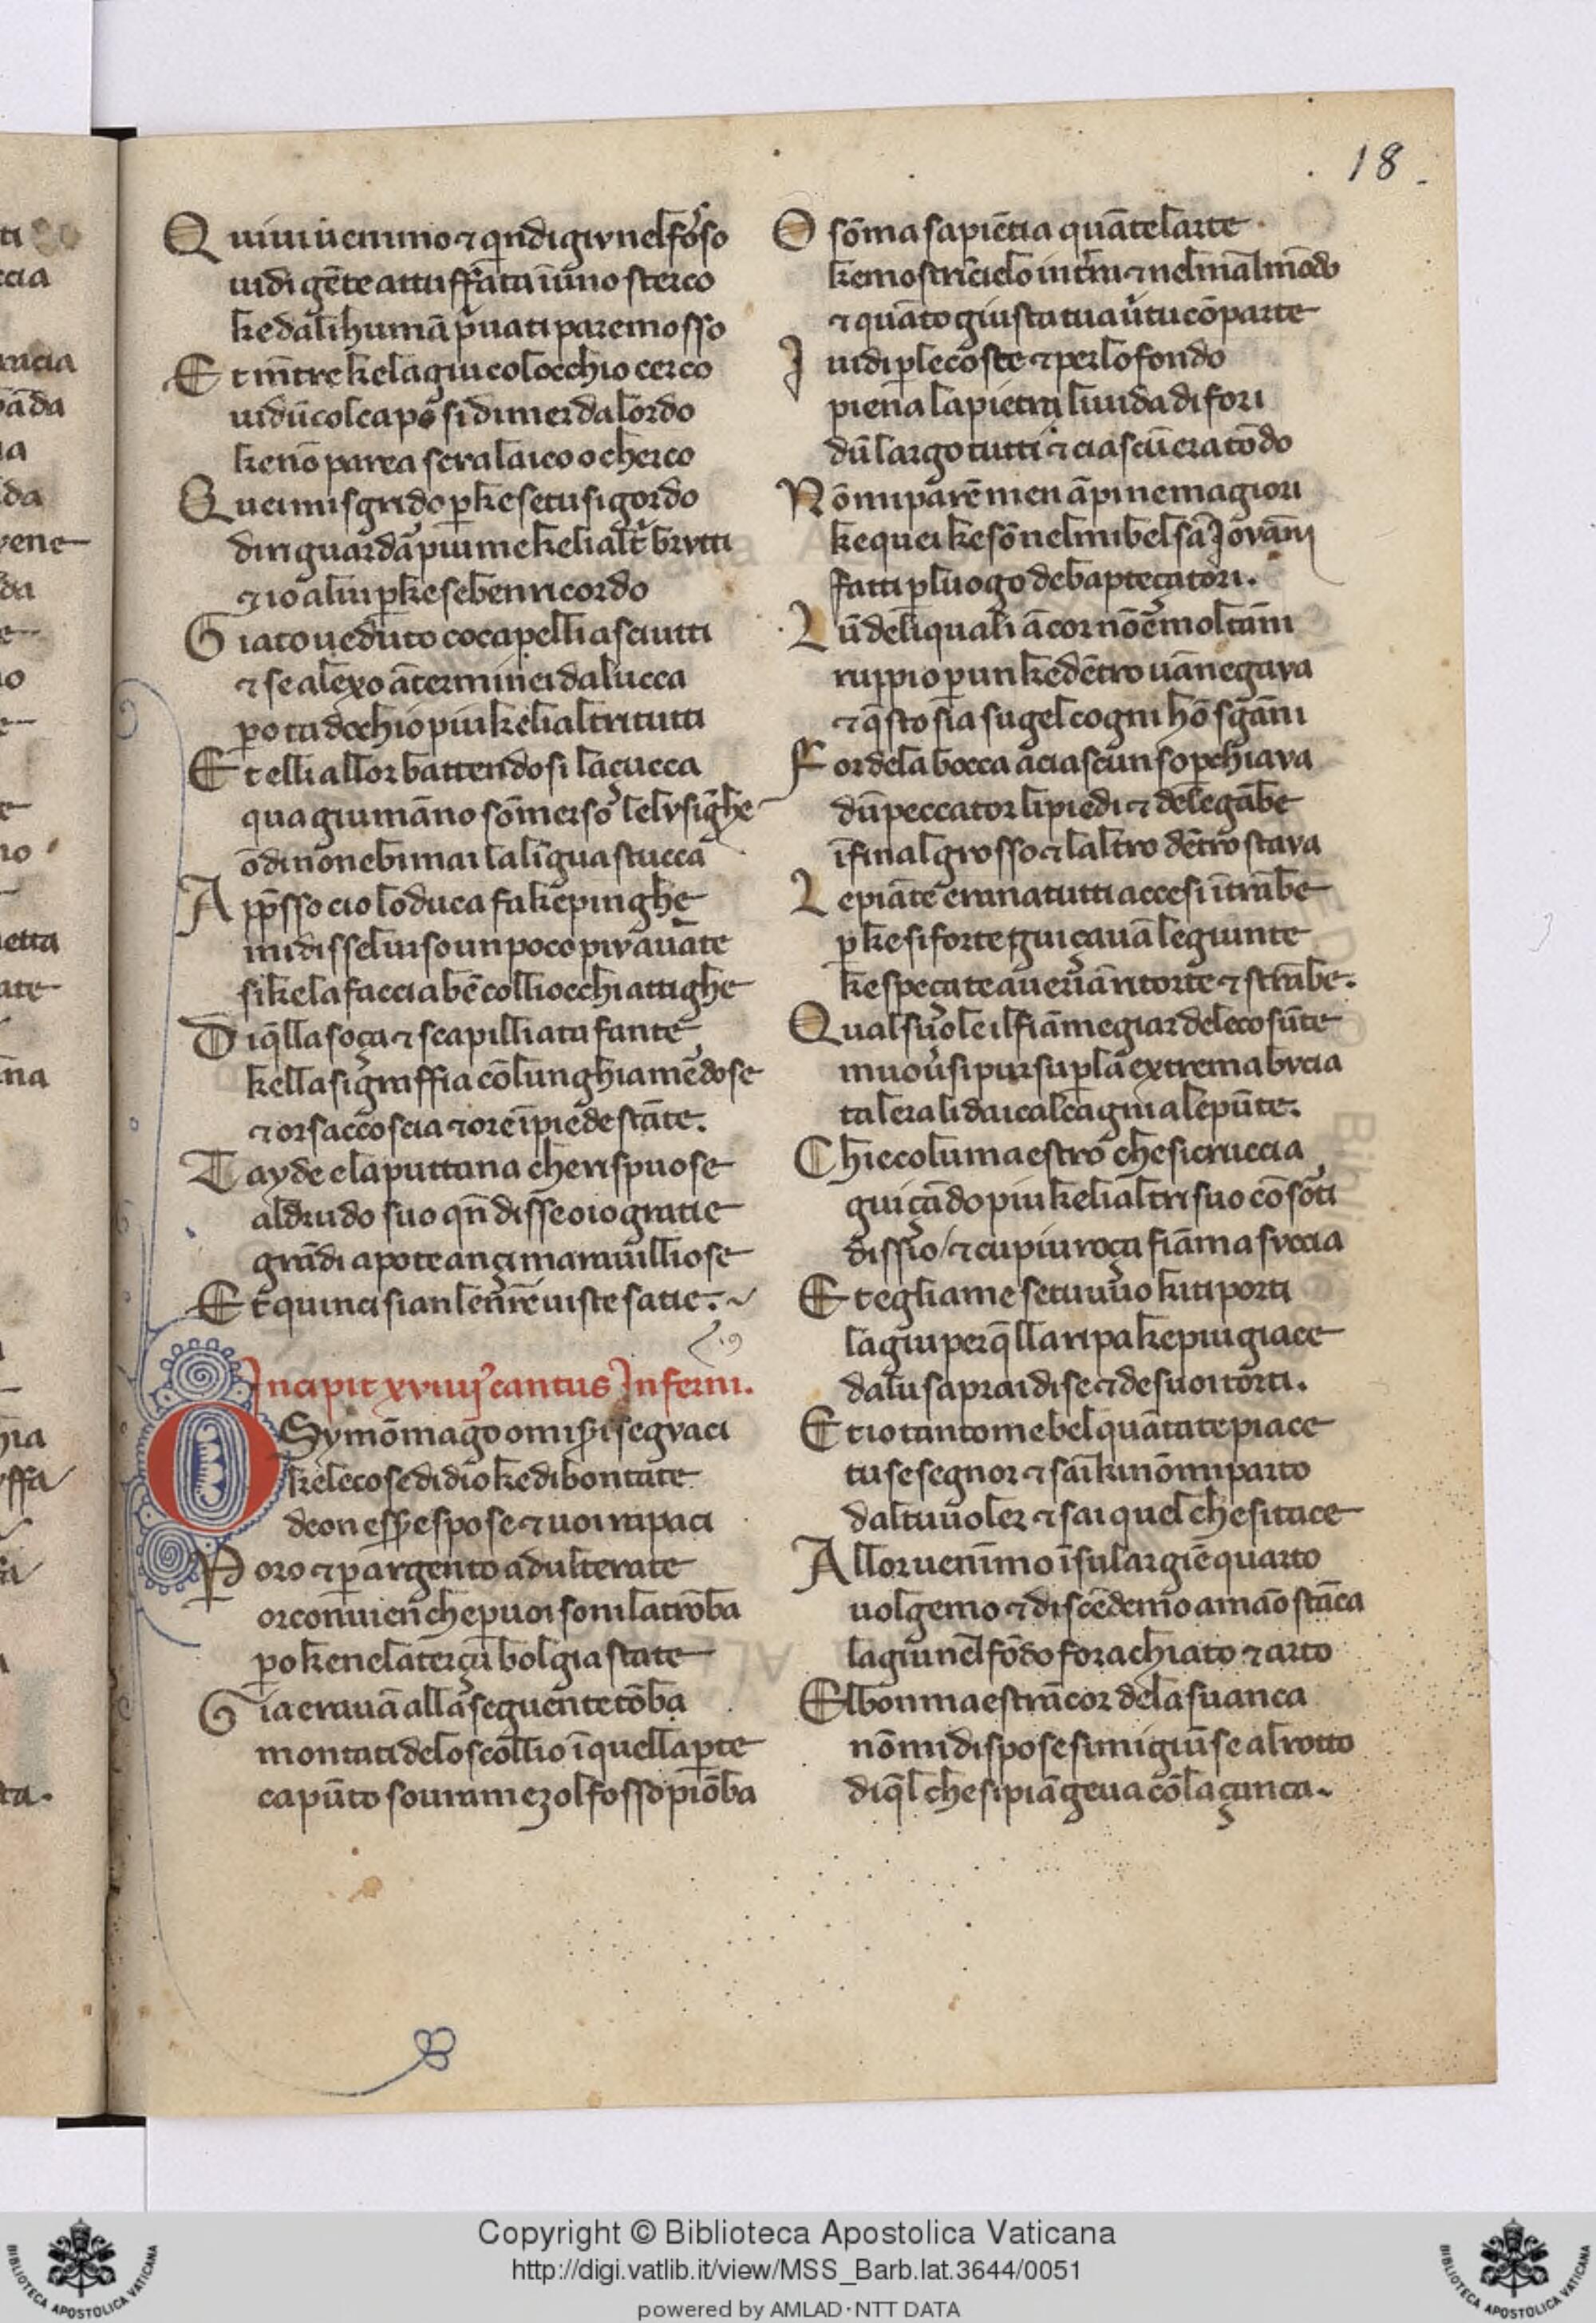 18
Q uiui uēnimo ⁊ qndi giv nel fosso
uidi gēte attuffata ī uno sterco
ke dali humā pͥuati parea mosso
E t mētre ke la giu co locchio cerco
uidū col capo si di merda lordo
ke nō parea sera laico o cherco
Q uei mi sgrido ꝑ ke se tu si gordo
di riguardā piu me ke li altͥ brvtti
⁊ io a lui ꝑ ke se ben ricordo
G ia to ueduto co capelli asciutti
⁊ se alexo āterminei da lucca
ꝑo ta dochio piu ke li altri tutti
E t elli allor battendosi la çucca
qua giu māno sōmerso le lvsīghe
ōdi non ebi mai la līgua stucca
A pp̄sso cio lo duca fa ke pinghe
mi disse l uiso un poco piv auāte
si ke la faccia bē colli occhi attighe
D i q̄lla soça ⁊ scapilliata fante
kella si graffia cō lunghia mēdose
⁊ or sacco scia ⁊ ore ī piede stāte.
T ayde e la puttana che rispuose
al drudo suo qn̄ disse o io gratie
grādi apo te ançi marauilliose
E t quinci sian le nr̄e uiste satie. ~
Incipit xviiij cantus Inferni.
O Symō mago o miseri seguaci
ke le cose di dio ke di bontate
deon essere spose ⁊ uoi rapaci
P oro ⁊ ꝑ argento adulterate
or conuien che ꝑ uoi soni la trōba
ꝑo ke ne la terça bolgia state
G ia erauā alla seguente tōba
montati de lo scollio ī quella ꝑte
ca pūto soura mezol fosso piōba
O sōma sapiētia quātē larte
ke mostri ī cielo in tr̄a ⁊ nel mal mōdo
⁊ quāto giusto tua uͥtu cōparte
I uidi ꝑ le coste ⁊ per lo fondo
piena la pietra liuida di fori
dū largo tutti ⁊ ciascū era tōdo
N ō mi parēn men āpi ne magiori
ke quei ke sō nel mi bel sā Jovāni
fatti ꝑ luogo de bapteçatori.
L ū deli quali ācor nō ē molt āni
ruppio ꝑ un ke dētro uānegava
⁊ q̄sto sia sugel cogni hō sgāni
F or dela bocca a ciascun soꝑchiava
dū peccator li piedi ⁊ dele gābe
īfin al grosso ⁊ laltro dētro stava
L e piāte erano a tutti accesi ītrābe
ꝑ ke si forte guiçauā le giunte
ke speçate auerian ritorte ⁊ strābe.
Q ual suole il fiāmegiar dele cose ūte
muouͥsi pur su ꝑ la extrema bvcia
tal era li dai calcagni ale pūte.
C hi e colui maestro che si cruccia
guiçādo piu ke li altri suo cōsorti
diss io / ⁊ cui piu roça fiāma svccia
E t egli a me se tu uuo ki ti porti
la giu per q̄lla ripa ke piu giace
da lui saprai di se ⁊ de suoi torti.
E t io tanto me bel quāto a te piace
tu se segnor ⁊ sai ki nō mi parto
dal tuuoler ⁊ sai quel che si tace
A llor uenīmo ī su largiē quarto
uolgemo ⁊ discēdemo a māo stāca
la giu nel fōdo forachiato ⁊ arto
E l bon maestro ācor dela sua nca
nō mi dispose si mi giūse al rotto
di q̄l che si piāgeua cō la çanca ~
Copyright © Biblioteca Apostolica Vaticana
http://digi.vatlib.it/view/MSS_Barb.lat.3644/0051
powered by AMLAD·NTT DATA